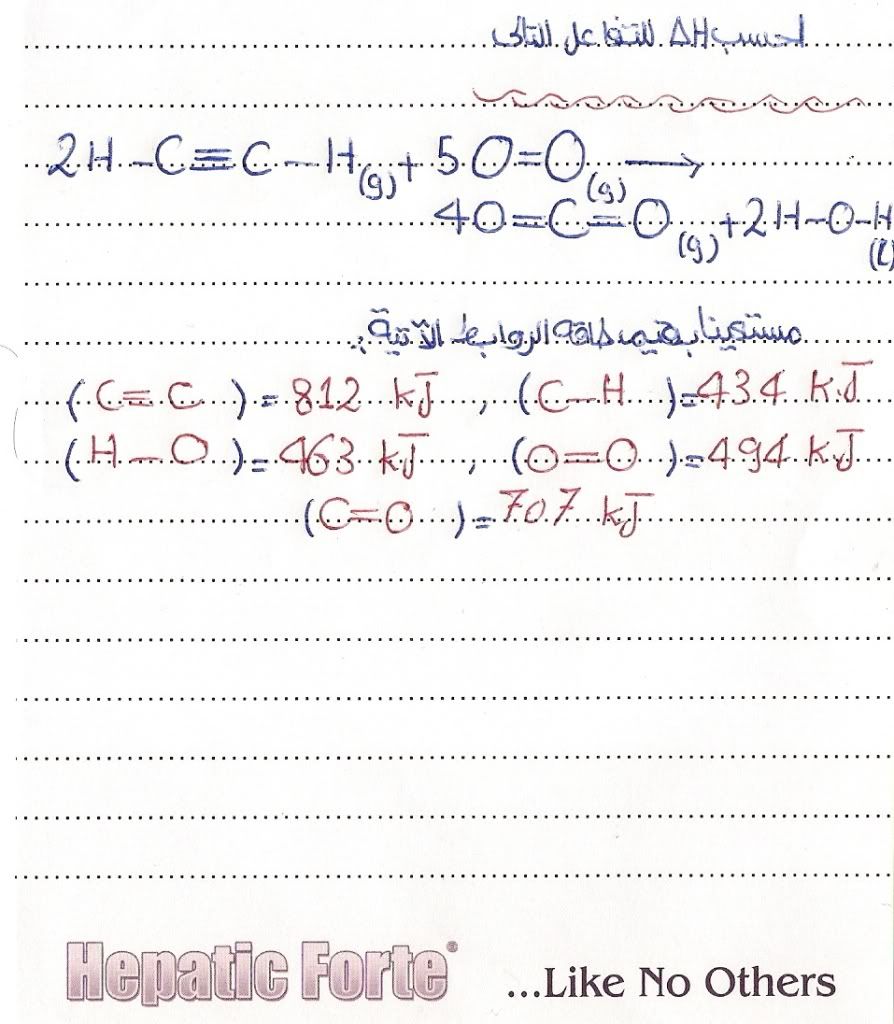 احسب ΔH للتفاعل التالى
2H-C≡C-H(g) + 5O=O(g) ⟶
4O=C=O(g) + 2H-O-H(l)
مستعينا بقيم طاقة الروابط الآتية :
(C≡C) = 812 kJ , (C-H) = 434 kJ
(H-O) = 463 kJ , (O=O) = 494 kJ
(C=O) = 707 kJ
Hepatic Forte® ...Like No Others